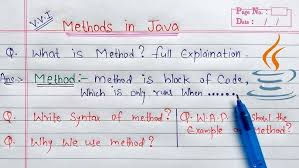 V.V.I
Methods in Java
Page No.:
Date :
Q. What is Method? full Explaination.
Ans:- Method:- Method is block of Code,
Which is only runs when ......
Q. Write Syntax of method?
Q. W.A.P. Show the
Example of Method?
Q. Why We use method?